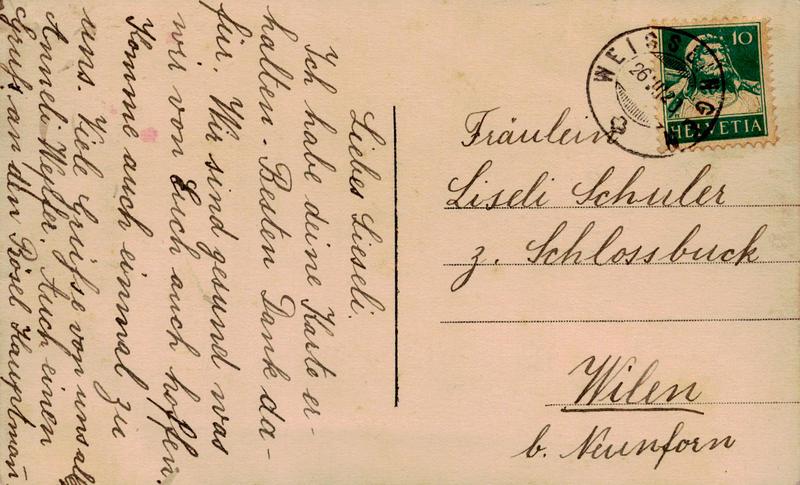 Liebes Lieseli.
Ich habe deine Karte er-
halten. Besten Dank da-
für. Wir sind gesund was
wir von Euch auch hoffen.
Komme auch einmal zu
uns. Viele Grüsse von uns all
Anneli Wepfer. Auch einen
Gruss an d'n Rösel Hauptman
10
HELVETIA
WEISSE
26
Fräulein
Liseli Schuler
z. Schlossbuck
Wilen
b. Neunforn